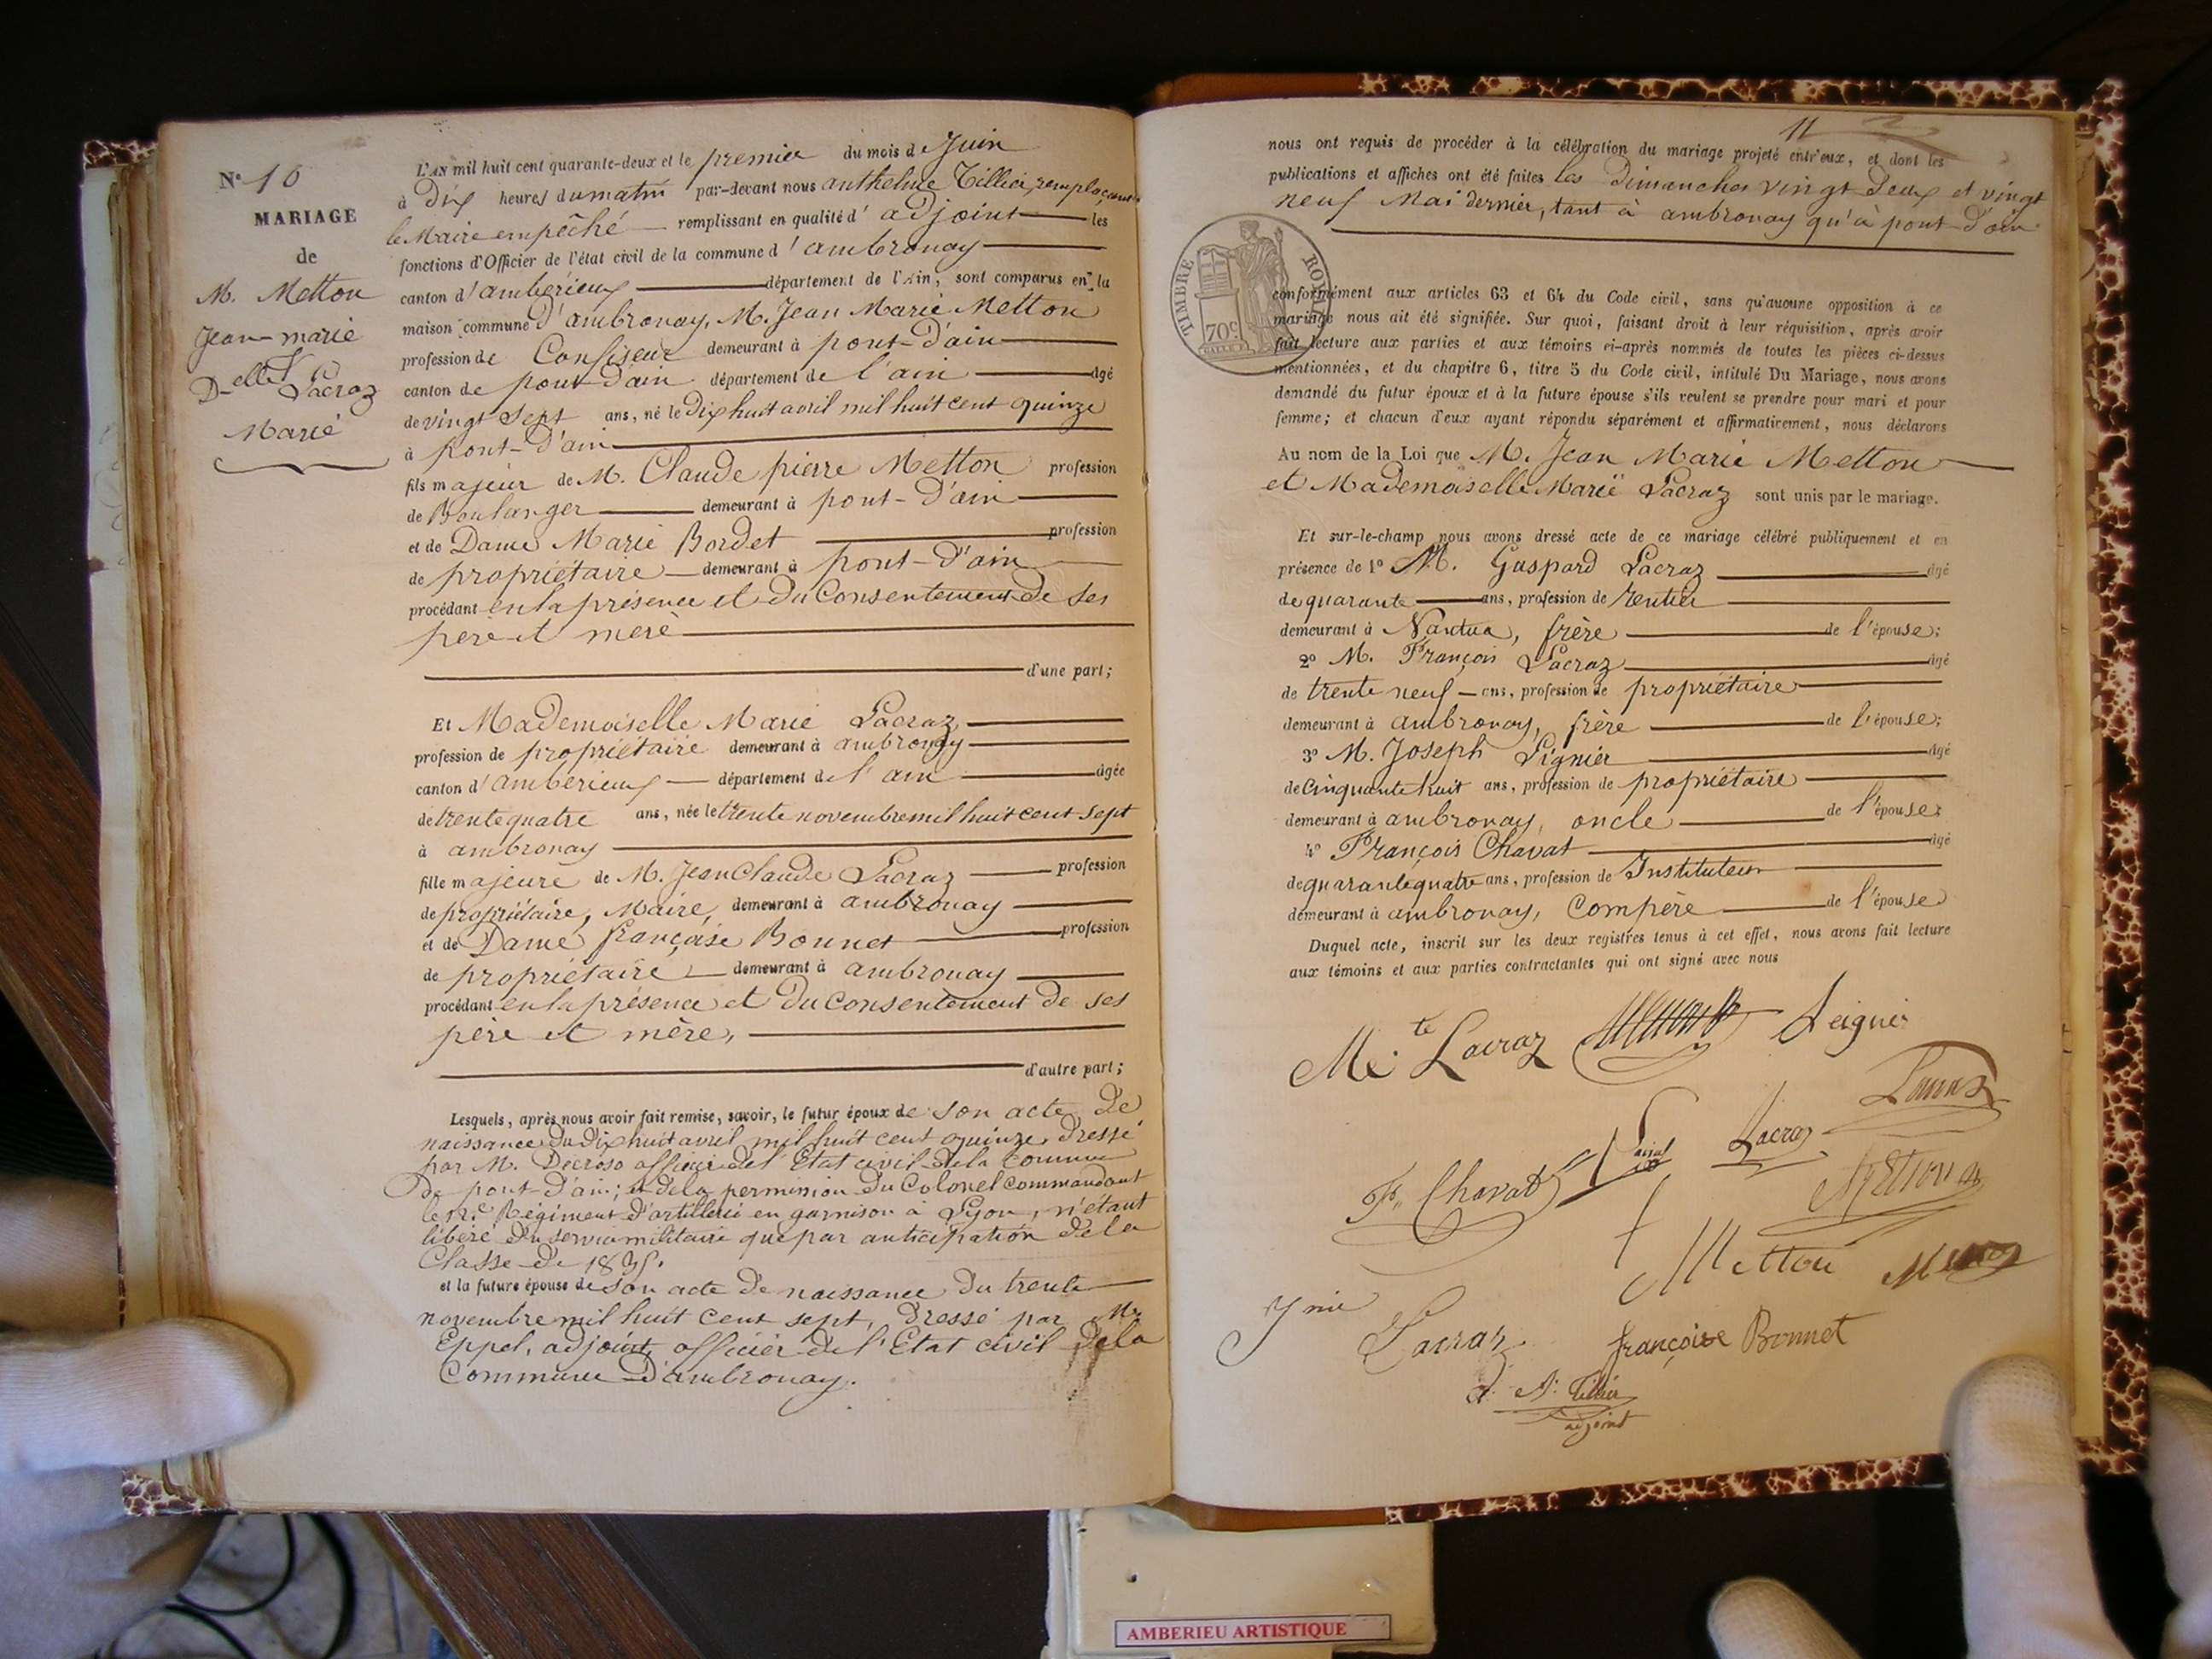 Nº 10
MARIAGE
de
M. Metton
Jean-marie
&
Delle Lacraz
Marie
L'AN mil huit cent quarante-deux et le premier du mois de Juin
à Dix heures du matin par-devant nous anthelme Tillier, remplaçant
le Maire empêché remplissant en qualité d' adjoint les
fonctions d'Officier de l'état civil de la commune d' ambronay
canton d' ambérieux département de l'Ain, sont comparus en la
maison commune d'ambronay, M. Jean Marie Metton
profession de Confiseur demeurant à pont-d'ain
canton de pont-d'ain département de l'ain âgé
de vingt sept ans, né le Dix huit avril mil huit cent quinze
à Pont-d'ain
fils majeur de M. Claude pierre Metton profession
de Boulanger demeurant à pont-d'ain
et de Dame Marie Bordet profession
de propriétaire demeurant à pont-d'ain
procédant en la présence et du Consentement de ses
père et mère
d'une part;
ET Mademoiselle Marie Lacraz
profession de propriétaire demeurant à ambronay
canton d' ambérieux département de l'ain âgée
de trente quatre ans, née le trente novembre mil huit cent sept
à ambronay
fille majeure de M. Jean Claude Lacraz profession
de propriétaire, Maire, demeurant à ambronay
et de Dame françoise Bonnet profession
de propriétaire demeurant à ambronay
procédant en la présence et du consentement de ses
père et mère,
d'autre part;
Lesquels, après nous avoir fait remise, savoir, le futur époux de son acte de
naissance du Dix huit avril mil huit cent quinze, dressé
par M. Decroso officier del' Etat civil dela commune
de pont-d'ain; et dela permission du Colonel Commandant
le 12e Régiment d'artillerie en garnison à Lyon, n'étant
libéré du service militaire que par anticipation dela
Classe de 1835.
et la future épouse de son acte de naissance du trente
novembre mil huit cent sept, dressé par Mr
Eppel, adjoint, officier del' Etat civil dela
Commune d'ambronay.
11
nous ont requis de procéder à la célébration du mariage projeté entr'eux, et dont les
publications et affiches ont été faites les Dimanches vingt deux et vingt
neuf Mai dernier, tant à ambronay qu'à pont-d'ain
TIMBRE ROYAL
70c
conformément aux articles 63 et 64 du Code civil, sans qu'aucune opposition à ce
mariage nous ait été signifiée. Sur quoi, faisant droit à leur réquisition, après avoir
fait lecture aux parties et aux témoins ci-après nommés de toutes les pièces ci-dessus
mentionnées, et du chapitre 6, titre 5 du Code civil, intitulé Du Mariage, nous avons
demandé du futur époux et à la future épouse s'ils veulent se prendre pour mari et pour
femme; et chacun d'eux ayant répondu séparément et affirmativement, nous déclarons
Au nom de la Loi que M. Jean Marie Metton
et Mademoiselle Marie Lacraz sont unis par le mariage.
Et sur-le-champ nous avons dressé acte de ce mariage célébré publiquement et en
présence de 1º M. Gaspard Lacraz âgé
de quarante ans, profession de rentier
demeurant à Nantua, frère de l'épouse;
2º M. François Lacraz âgé
de trente neuf ans, profession de propriétaire
demeurant à ambronay, frère de l'épouse;
3º M. Joseph Lignier âgé
de Cinquante huit ans, profession de propriétaire
demeurant à ambronay, oncle de l'épouse;
4º François Chavat âgé
de quarante quatre ans, profession de Instituteur
demeurant à ambronay, Compère de l'épouse
Duquel acte, inscrit sur les deux registres tenus à cet effet, nous avons fait lecture
aux témoins et aux parties contractantes qui ont signé avec nous
Mte Lacraz Leignier
Fs Chavat Lacraz
Metton
Metton
Lacraz françoise Bonnet
A. Tillier
adjoint
AMBERIEU ARTISTIQUE